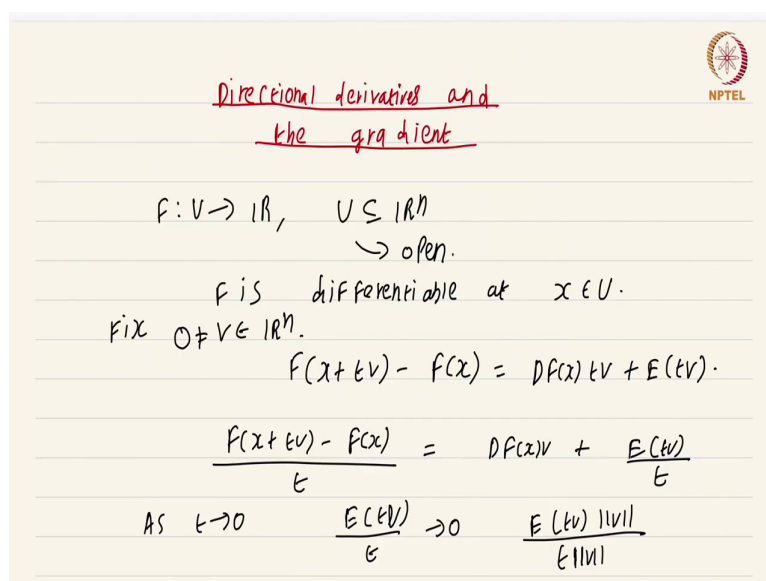 NPTEL
Directional derivatives and
the gradient
F : U → ℝ, U ⊆ ℝⁿ
↳ open.
F is differentiable at x ∈ U.
Fix 0 ≠ v ∈ ℝⁿ.
F(x + tv) - F(x) = DF(x) tv + E(tv).
(F(x + tv) - F(x))/t = DF(x)v + E(tv)/t
As t → 0 E(tv)/t → 0 E(tv) ||v|| / t||v||